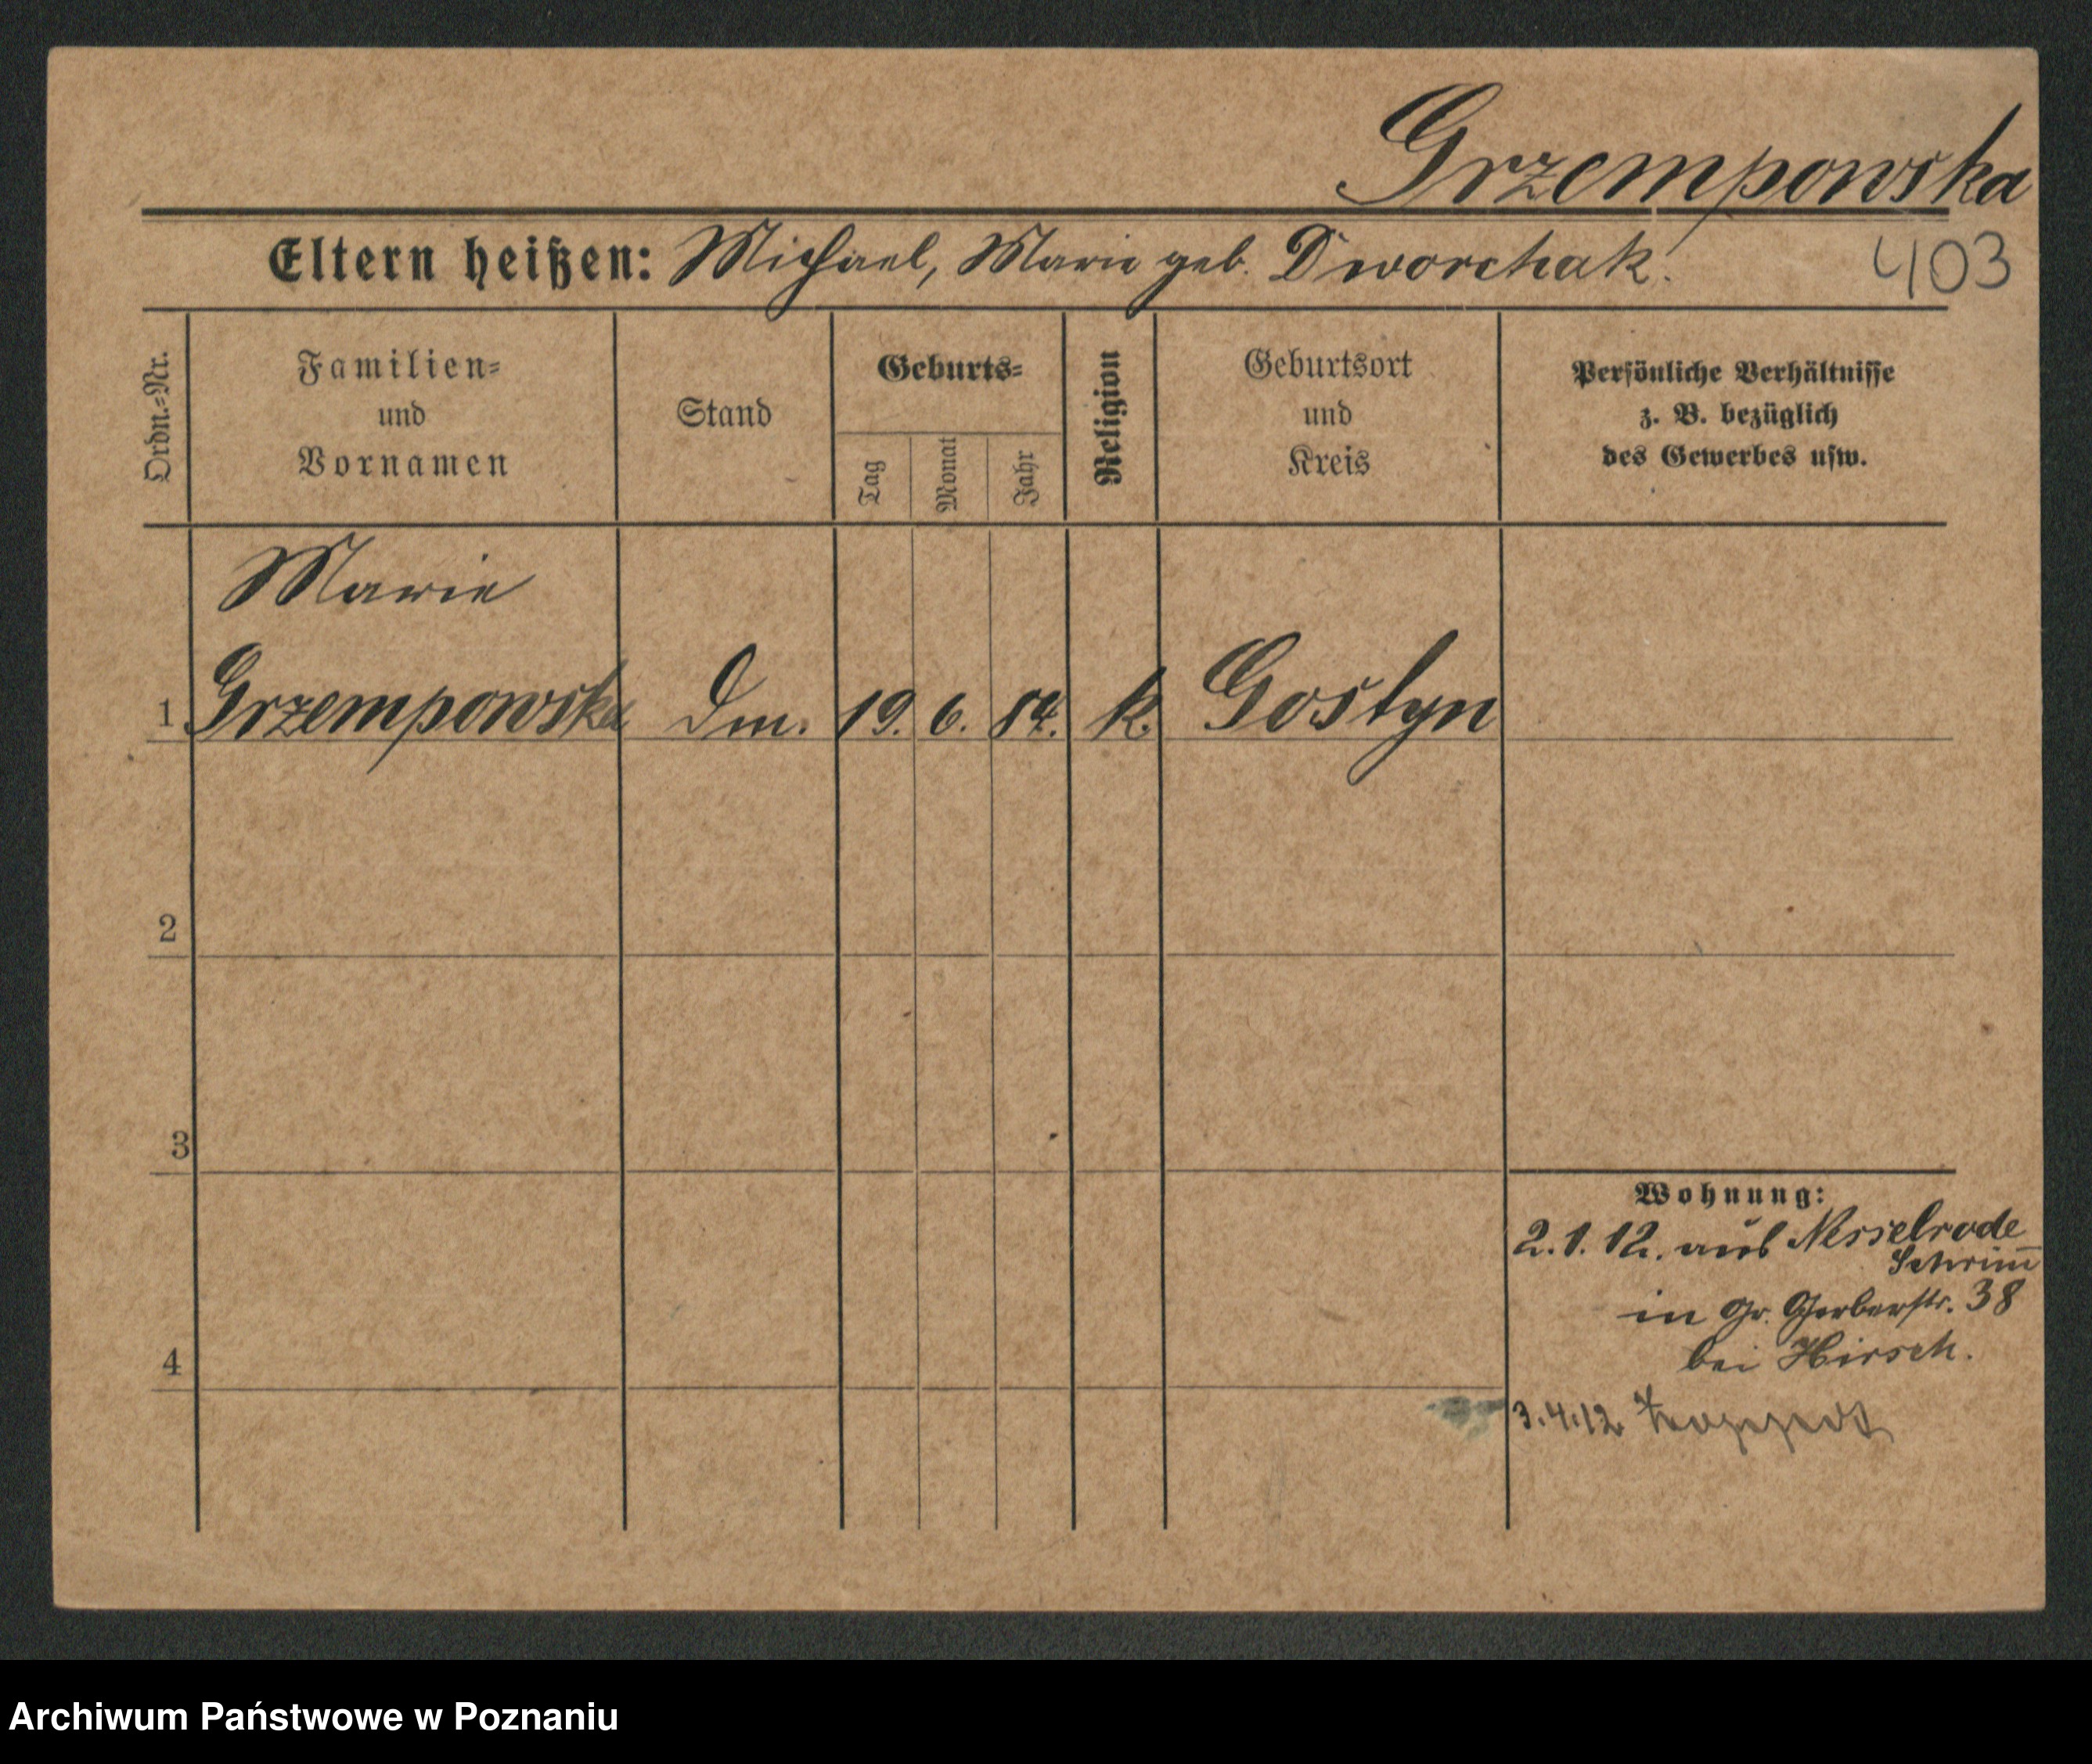 Grzempowska
Eltern heißen: Michael, Marie geb. Dworchak.
403
Ordn.-Nr.
Familien-
und
Vornamen
Stand
Geburts-
Tag
Monat
Jahr
Religion
Geburtsort
und
Kreis
Persönliche Verhältnisse
z. B. bezüglich
des Gewerbes usw.
Marie
1 Grzempowska Dm. 19. 6. 84. k. Gostyn
2
3
4
Wohnung:
2.1.12. aus Nesselrode
Schrim̅
in Gr. Gerberstr. 38
bei Hirsch.
3.4.12
Archiwum Państwowe w Poznaniu